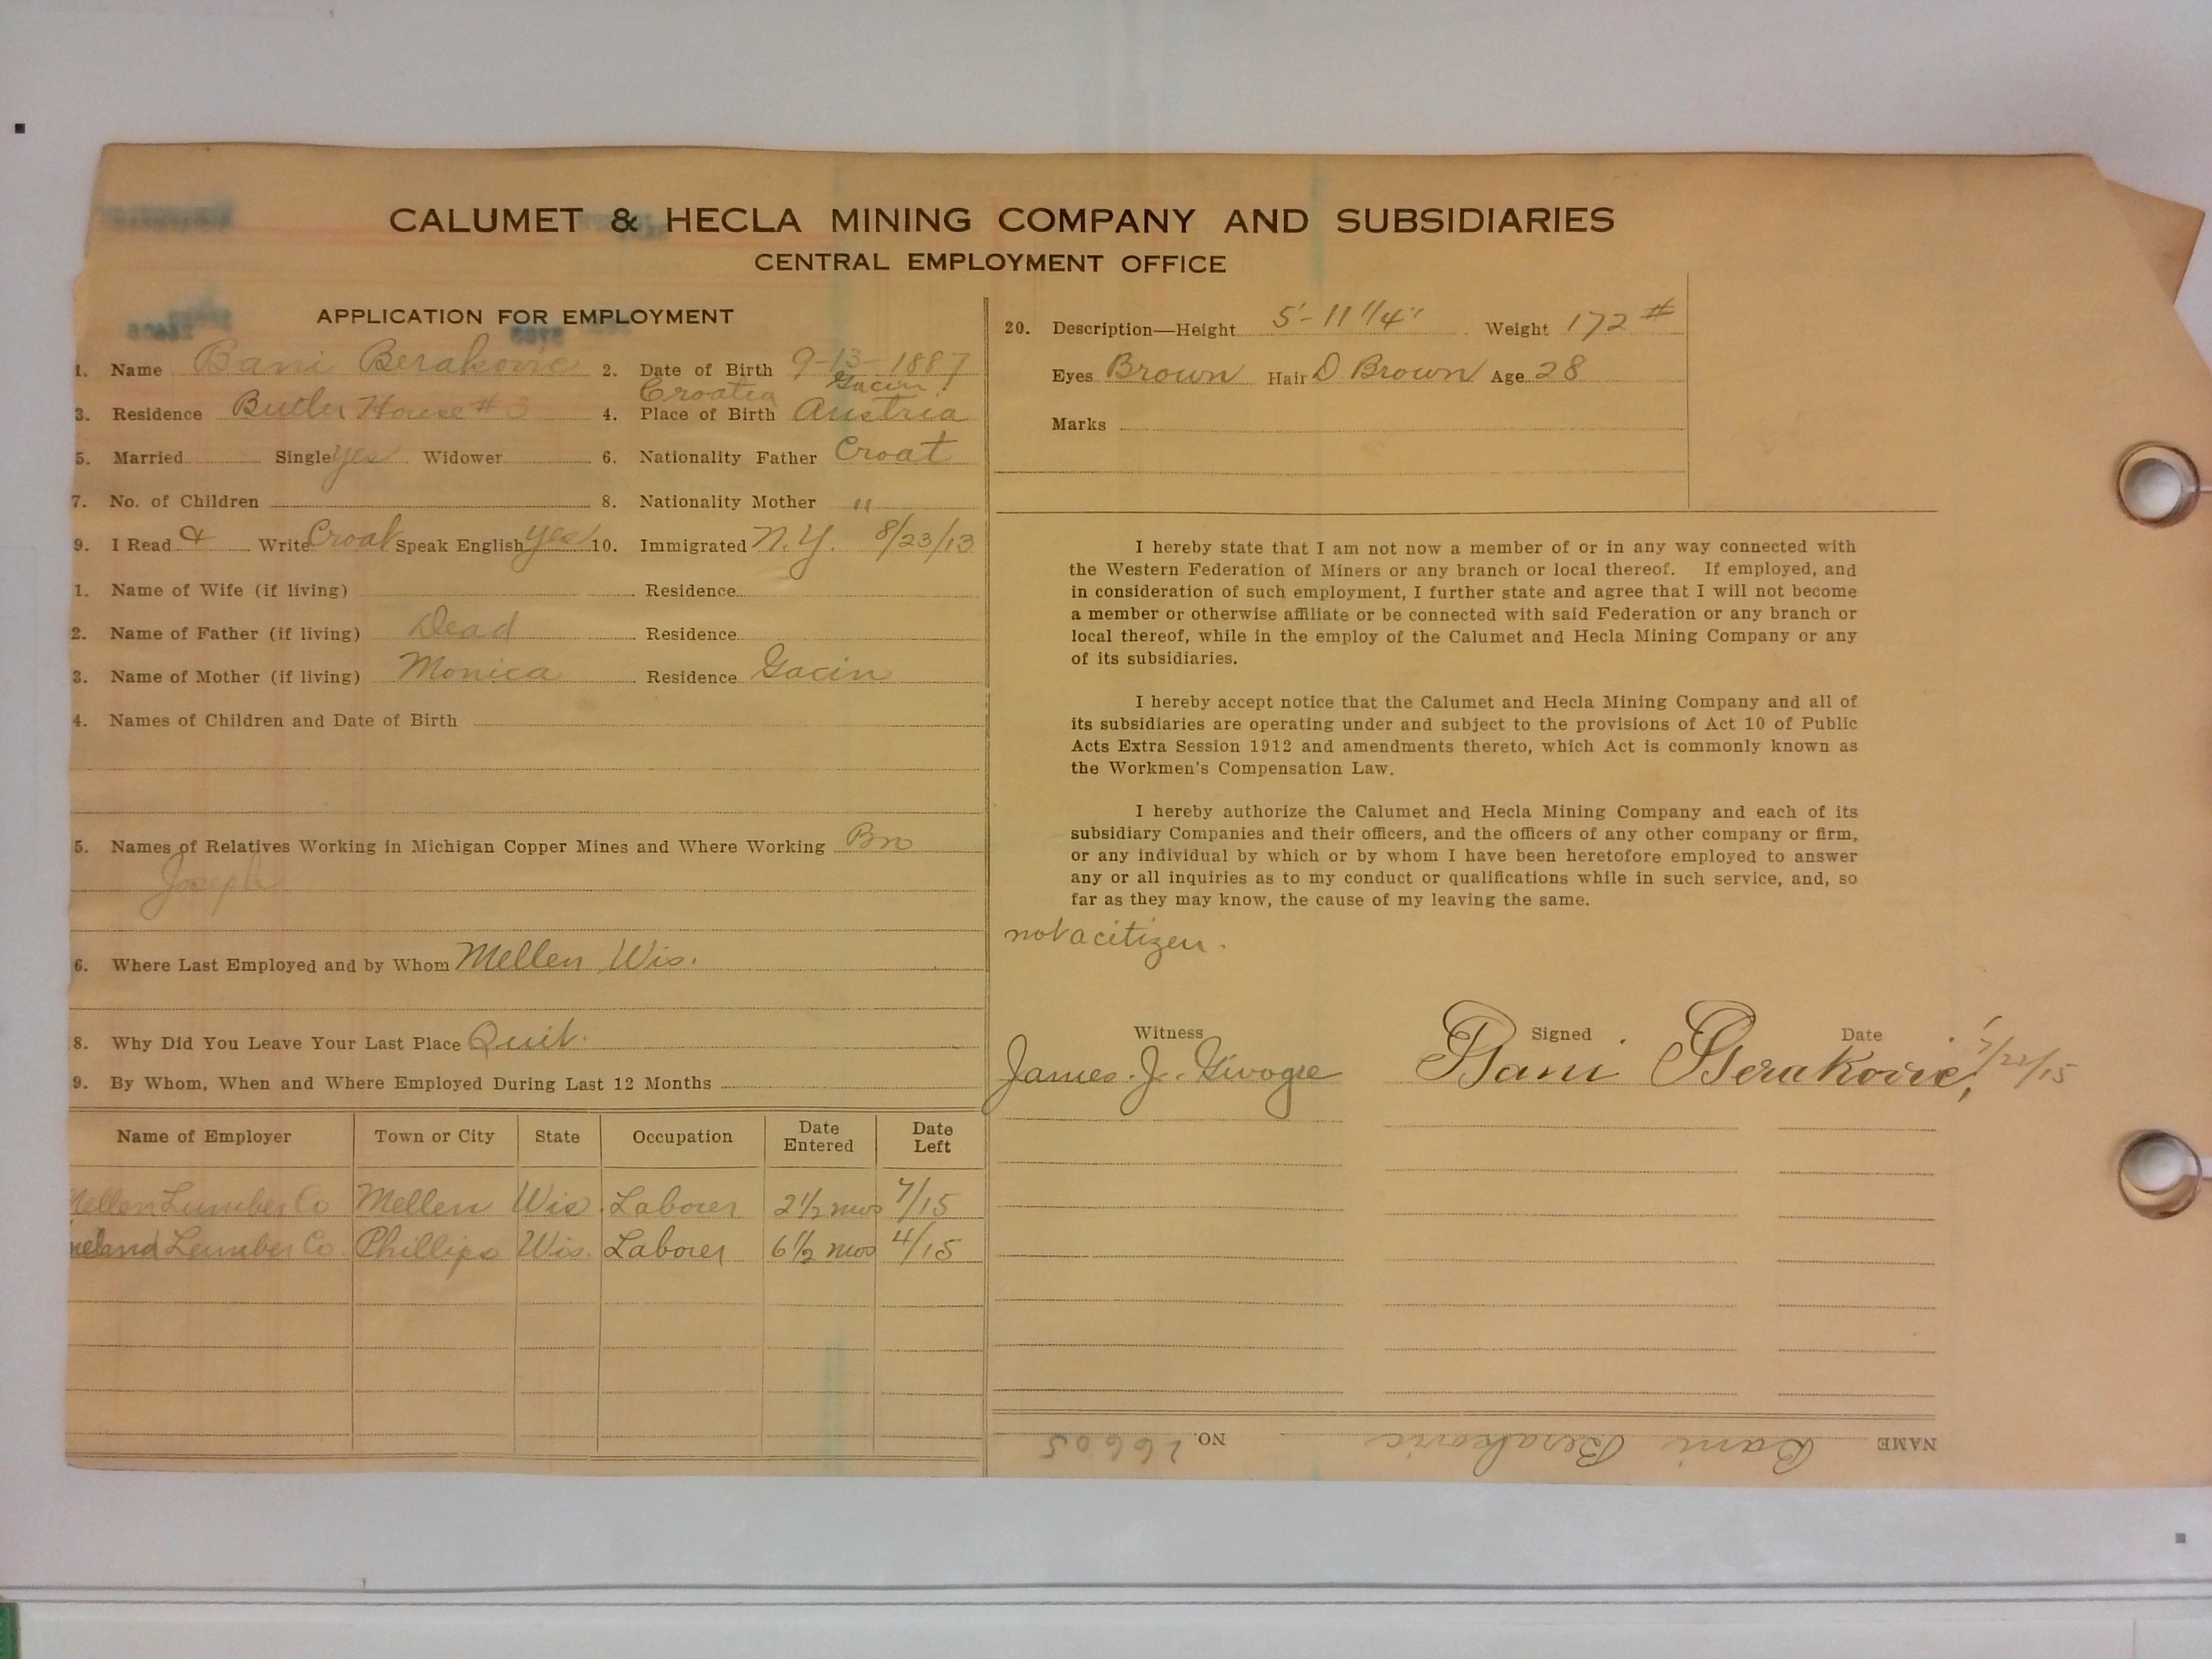 CALUMET & HECLA MINING COMPANY AND SUBSIDIARIES
CENTRAL EMPLOYMENT OFFICE
APPLICATION FOR EMPLOYMENT
1. Name Bani Berakovic 2. Date of Birth 9-13-1887
Croatia Gacin
3. Residence Butler House #3 4. Place of Birth Austria
5. Married Single yes Widower 6. Nationality Father Croat
7. No. of Children 8. Nationality Mother "
9. I Read & Write Croat Speak English yes 10. Immigrated N.Y. 8/23/13
1. Name of Wife (if living) Residence
2. Name of Father (if living) Dead Residence
3. Name of Mother (if living) Monica Residence Gacin
4. Names of Children and Date of Birth
5. Names of Relatives Working in Michigan Copper Mines and Where Working Bro
Joseph
6. Where Last Employed and by Whom Mellen Wis.
8. Why Did You Leave Your Last Place Quit.
9. By Whom, When and Where Employed During Last 12 Months
Name of Employer Town or City State Occupation Date Entered Date Left
Mellen Lumber Co Mellen Wis. Laborer 2 1/2 mos 7/15
Lumber Co. Phillips Wis. Laborer 6 1/2 mos 4/15
20. Description—Height 5'-11 1/4" Weight 172 #
Eyes Brown Hair D Brown Age 28
Marks
I hereby state that I am not now a member of or in any way connected with
the Western Federation of Miners or any branch or local thereof. If employed, and
in consideration of such employment, I further state and agree that I will not become
a member or otherwise affiliate or be connected with said Federation or any branch or
local thereof, while in the employ of the Calumet and Hecla Mining Company or any
of its subsidiaries.
I hereby accept notice that the Calumet and Hecla Mining Company and all of
its subsidiaries are operating under and subject to the provisions of Act 10 of Public
Acts Extra Session 1912 and amendments thereto, which Act is commonly known as
the Workmen's Compensation Law.
I hereby authorize the Calumet and Hecla Mining Company and each of its
subsidiary Companies and their officers, and the officers of any other company or firm,
or any individual by which or by whom I have been heretofore employed to answer
any or all inquiries as to my conduct or qualifications while in such service, and, so
far as they may know, the cause of my leaving the same.
not a citizen.
Witness Signed Date
James. J. Bani Berakovic, 7/22/15
NAME Bani Berakovic NO. 26605